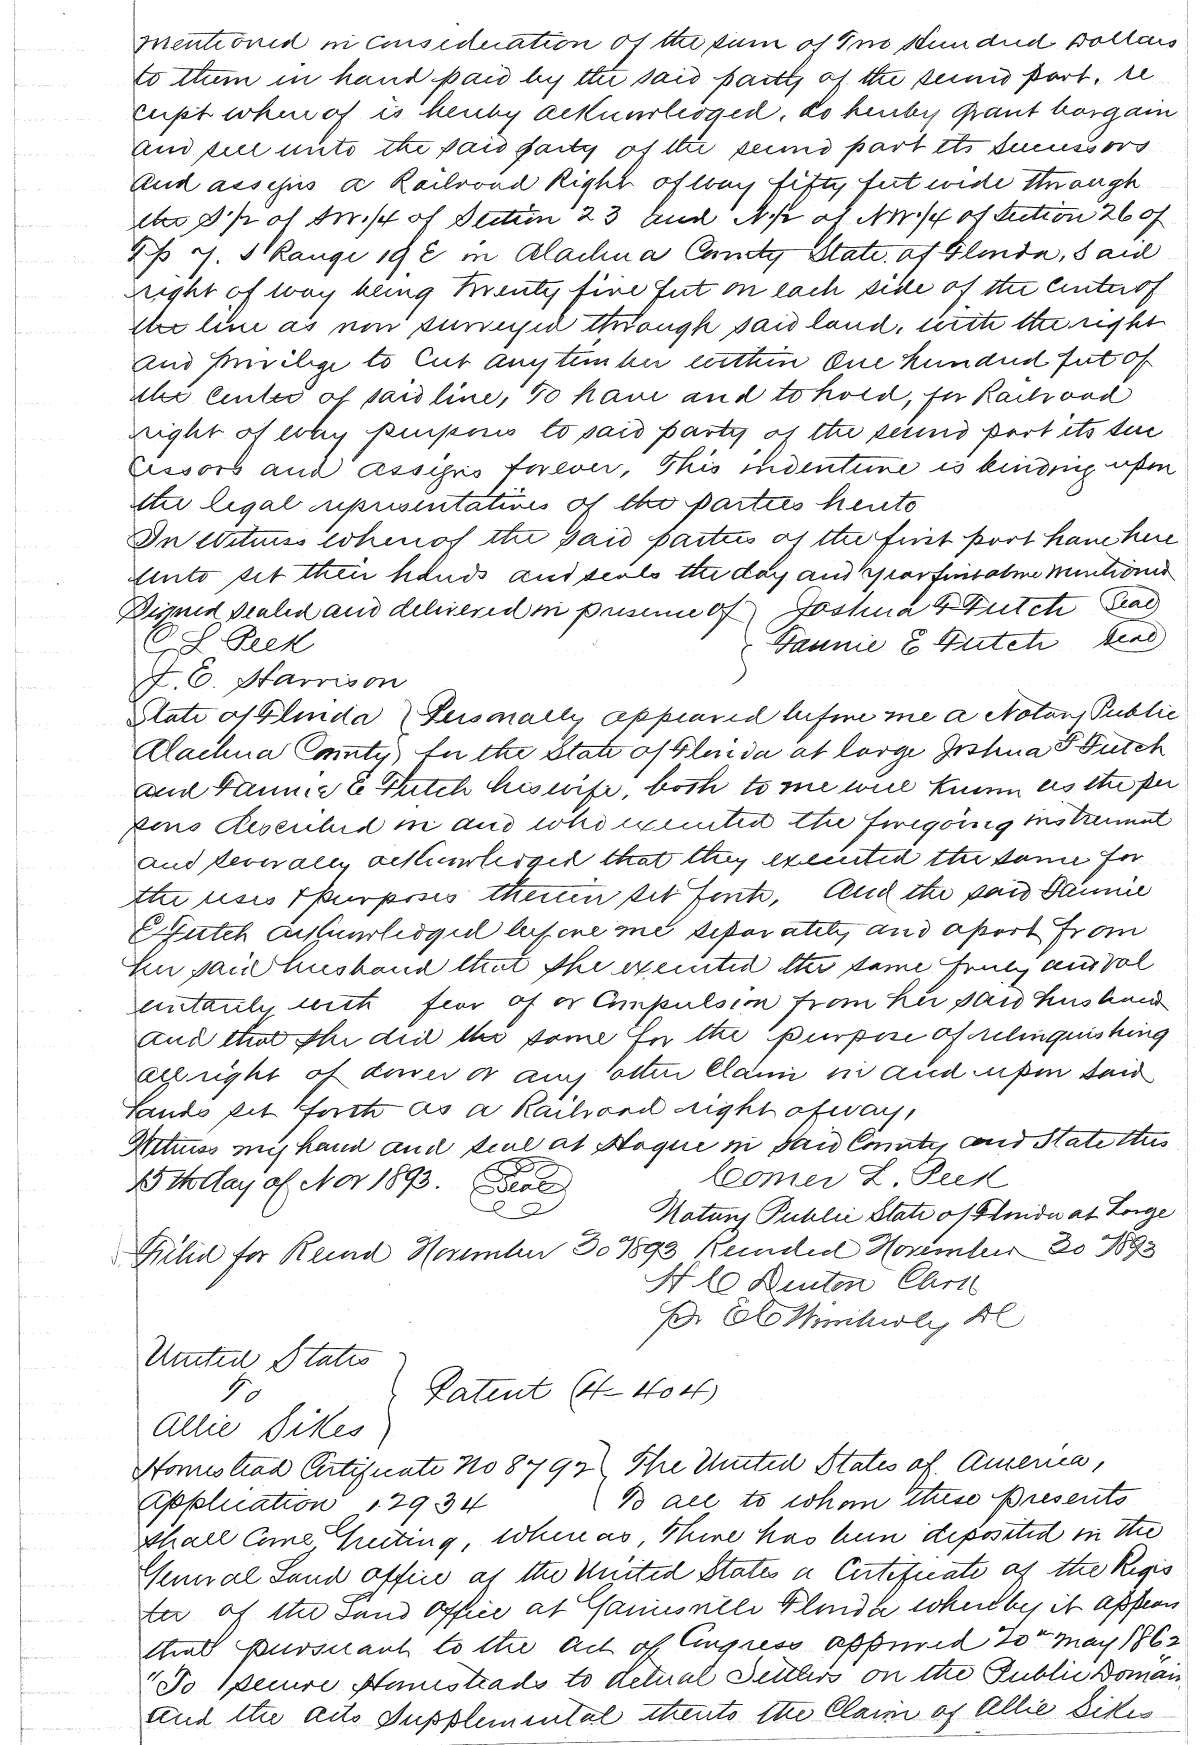 mentioned in consideration of the sum of Two Hundred Dollars
to them in hand paid by the said party of the second part, re
ceipt where of is hereby acknowledged, do hereby grant bargain
and sell unto the said party of the second part its successors
and assigns a Railroad Right of way fifty feet wide through
the S 1/2 of SW 1/4 of Section 23 and N 1/2 of NW 1/4 of Section 26 of
Tp 7. S Range 19 E in Alachua County State of Florida, Said
right of way being Twenty five feet on each side of the center of
the line as now surveyed through said land, with the right
and privilege to cut any timber within One hundred feet of
the center of said line, To have and to hold, for Railroad
right of way purposes to said party of the second part its suc
cessors and assigns forever, This indenture is binding upon
the legal representatives of the parties hereto
In Witness whereof the said parties of the first part have here
unto set their hands and seals the day and year first above mentioned
Signed sealed and delivered in presence of } Joshua F Futch Seal
C L Peek } Fannie E Futch Seal
J. E. Harrison
State of Florida } Personally appeared before me a Notary Public
Alachua County } for the State of Florida at large Joshua F Futch
and Fannie E Futch his wife, both to me well known as the per
sons described in and who executed the foregoing instrument
and severally acknowledged that they executed the same for
the uses & purposes therein set forth, And the said Fannie
E Futch acknowledged before me separately and apart from
her said husband that she executed the same freely and vol
untarily with fear of or Compulsion from her said husband
and that she did the same for the purpose of relinquishing
all right of dower or any other Claim in and upon said
lands set forth as a Railroad right of way,
Witness my hand and seal at Hague in said County and State this
15th day of Nov 1893. Seal Comer L. Peek
Notary Public State of Florida at Large
Filed for Record November 30 1893 Recorded November 30 1893
H C Denton Clerk
Pr E C Wimberly DC
United States
To } Patent (4-404)
Allie Sikes
Homestead Certificate No 8792 } The United States of America,
Application 12934 } To all to whom these presents
shall Come, Greeting, whereas, There has been deposited in the
General Land office of the United States a Certificate of the Regis
ter of the Land Office at Gainesville Florida whereby it appears
that pursuant to the act of Congress approved 20th May 1862
"To secure Homesteads to Actual Settlers on the Public Domain"
and the acts Supplemental thereto the Claim of Allie Sikes